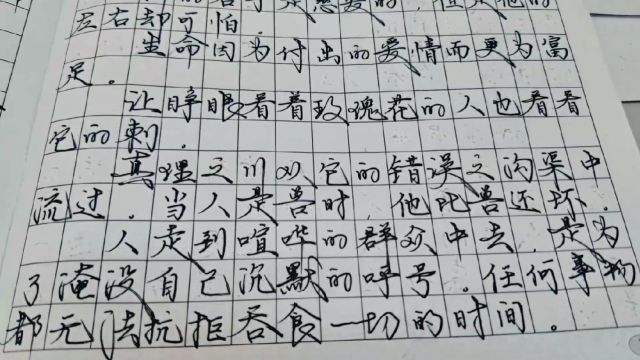 左右却可怕.
生命因为付出的爱情而更为富
足.
让睁眼看着玫瑰花的人也看看
它的刺.
真理之川从它的错误之沟渠中
流过.当人是兽时,他比兽还坏.
人走到喧哗的群众中去,是为
了淹没自己沉默的呼号.任何事物
都无法抗拒吞食一切的时间.